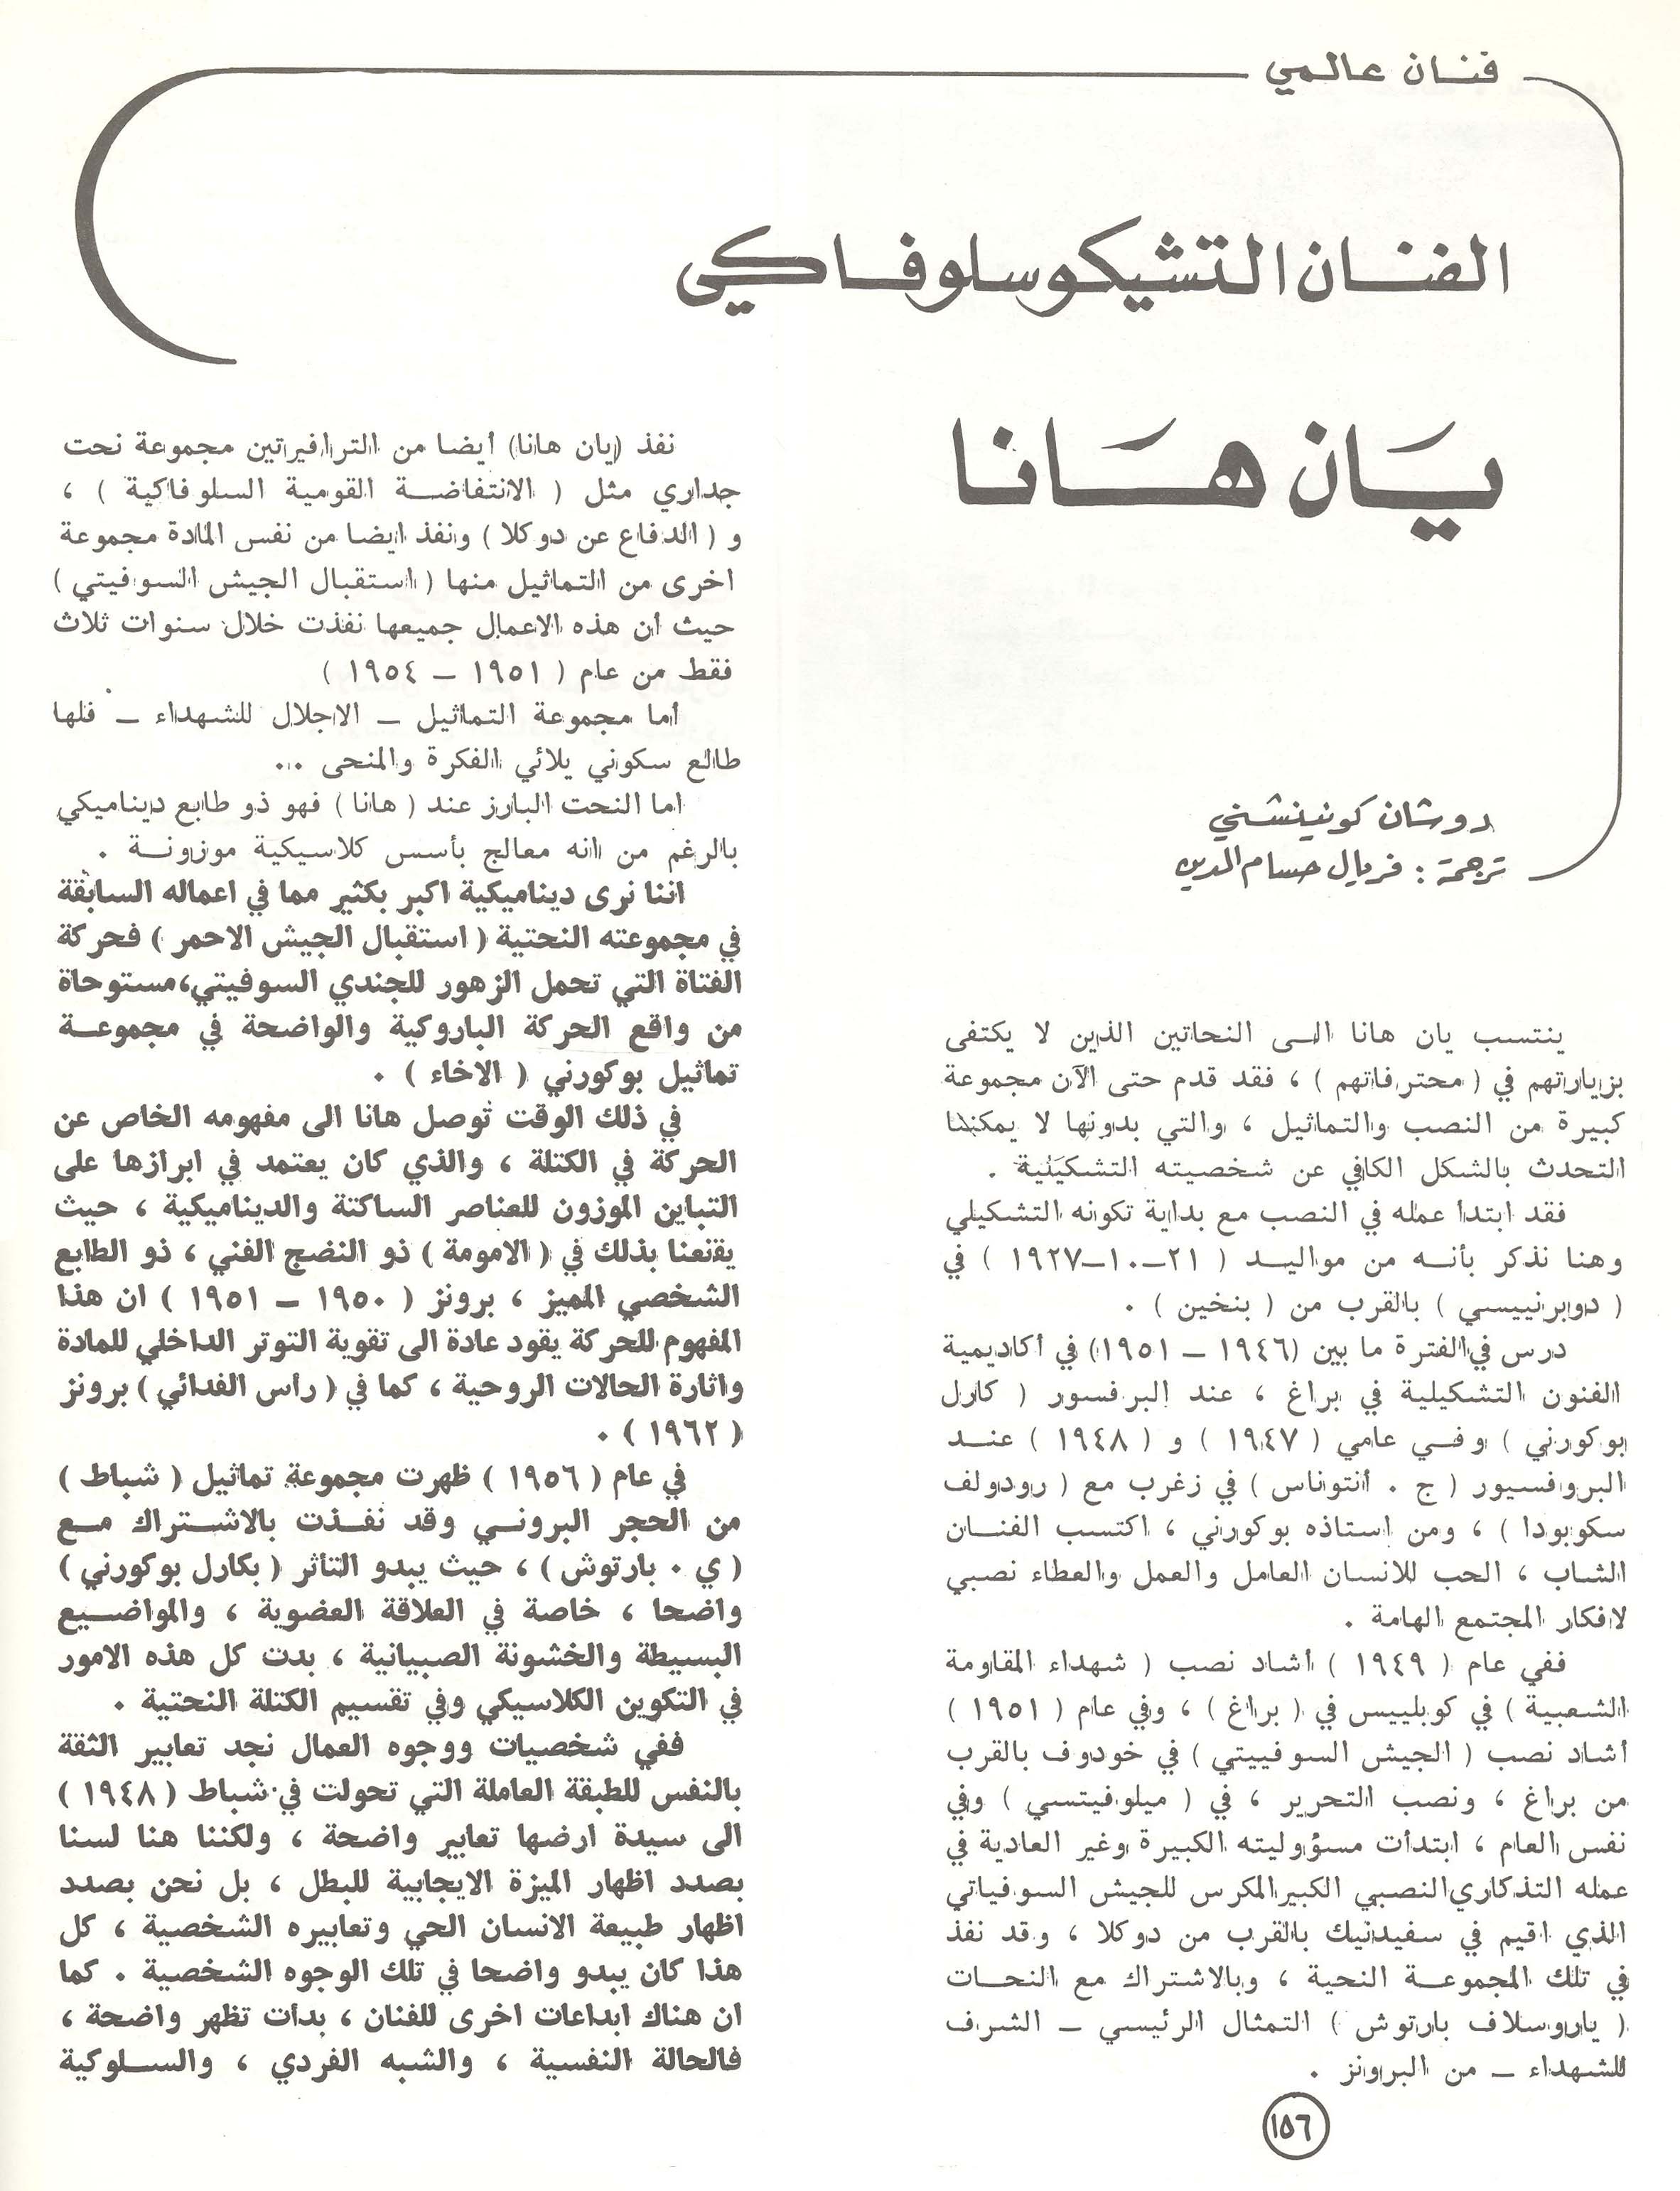 فنان عالمي
الفنان التشيكوسلوفاكي
يان هانا
دوشان كونيينشني
ترجمة : فريال حسام الدين
ينتسب يان هانا الى النحاتين الذين لا يكتفى
بزياراتهم في ( محترفاتهم ) ، فقد قدم حتى الآن مجموعة
كبيرة من النصب والتماثيل ، والتي بدونها لا يمكننا
التحدث بالشكل الكافي عن شخصيته التشكيلية .
فقد ابتدا عمله في النصب مع بداية تكونه التشكيلي
وهنا نذكر بأنه من مواليد ( ٢١-١٠-١٩٢٧ ) في
( دوبرنييسي ) بالقرب من ( بنخين ) .
درس في الفترة ما بين (١٩٤٦ - ١٩٥١) في أكاديمية
الفنون التشكيلية في براغ ، عند البرفسور ( كارل
بوكورني ) وفي عامي ( ١٩٤٧ ) و ( ١٩٤٨ ) عند
البروفسيور ( ج . أنتوناس ) في زغرب مع ( رودولف
سكوبودا ) ، ومن استاذه بوكورني ، اكتسب الفنان
الشاب ، الحب للانسان العامل والعمل والعطاء نصبي
لافكار المجتمع الهامة .
ففي عام ( ١٩٤٩ ) أشاد نصب ( شهداء المقاومة
الشعبية ) في كوبلييس في ( براغ ) ، وفي عام ( ١٩٥١ )
أشاد نصب ( الجيش السوفييتي ) في خودوف بالقرب
من براغ ، ونصب التحرير ، في ( ميلوفيتسي ) وفي
نفس العام ، ابتدأت مسؤوليته الكبيرة وغير العادية في
عمله التذكاري النصبي الكبير المكرس للجيش السوفياتي
الذي اقيم في سفيدنيك بالقرب من دوكلا ، وقد نفذ
في تلك المجموعة النحية ، وبالاشتراك مع النحات
( ياروسلاف بارتوش ) التمثال الرئيسي - الشرف
للشهداء - من البرونز .
نفذ (يان هانا) أيضا من الترافيرتين مجموعة نحت
جداري مثل ( الانتفاضة القومية السلوفاكية ) ،
و ( الدفاع عن دوكلا ) ونفذ ايضا من نفس المادة مجموعة
اخرى من التماثيل منها ( استقبال الجيش السوفيتي )
حيث أن هذه الاعمال جميعها نفذت خلال سنوات ثلاث
فقط من عام ( ١٩٥١ - ١٩٥٤ )
أما مجموعة التماثيل - الاجلال للشهداء - فلها
طالع سكوني يلائي الفكرة والمنحى ...
اما النحت البارز عند ( هانا ) فهو ذو طابع ديناميكي
بالرغم من انه معالج بأسس كلاسيكية موزونة .
اننا نرى ديناميكية اكبر بكثير مما في اعماله السابقة
في مجموعته النحتية ( استقبال الجيش الاحمر ) فحركة
الفتاة التي تحمل الزهور للجندي السوفيتي،مستوحاة
من واقع الحركة الباروكية والواضحة في مجموعة
تماثيل بوكورني ( الاخاء ) .
في ذلك الوقت توصل هانا الى مفهومه الخاص عن
الحركة في الكتلة ، والذي كان يعتمد في ابرازها على
التباين الموزون للعناصر الساكتة والديناميكية ، حيث
يقتعنا بذلك في ( الامومة ) ذو النضج الفني ، ذو الطابع
الشخصي المميز ، برونز ( ١٩٥٠ - ١٩٥١ ) ان هذا
المفهوم للحركة يقود عادة الى تقوية التوتر الداخلي للمادة
واثارة الحالات الروحية ، كما في ( راس الفدائي ) برونز
( ١٩٦٢ ) .
في عام ( ١٩٥٦ ) ظهرت مجموعة تماثيل ( شباط )
من الحجر البروني وقد نفذت بالاشتراك مع
( ي . بارتوش ) ، حيث يبدو التأثر ( بكارل بوكورني )
واضحا ، خاصة في العلاقة العضوية ، والمواضيع
البسيطة والخشونة الصبيانية ، بدت كل هذه الامور
في التكوين الكلاسيكي وفي تقسيم الكتلة النحتية .
ففي شخصيات ووجوه العمال نجد تعابير الثقة
بالنفس للطبقة العاملة التي تحولت في شباط ( ١٩٤٨ )
الى سيدة ارضها تعابير واضحة ، ولكننا هنا لسنا
بصدد اظهار الميزة الايجابية للبطل ، بل نحن بصدد
اظهار طبيعة الانسان الحي وتعابيره الشخصية ، كل
هذا كان يبدو واضحا في تلك الوجوه الشخصية . كما
ان هناك ابداعات اخرى للفنان ، بدات تظهر واضحة ،
فالحالة النفسية ، والشبه الفردي ، والسلوكية
١٥٦